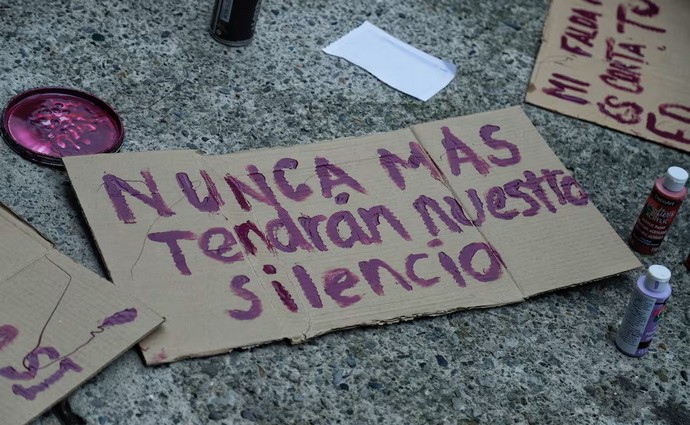 NUNCA MAS
Tendrán nuestro
silencio
MI FALDA
ES CORTA TU